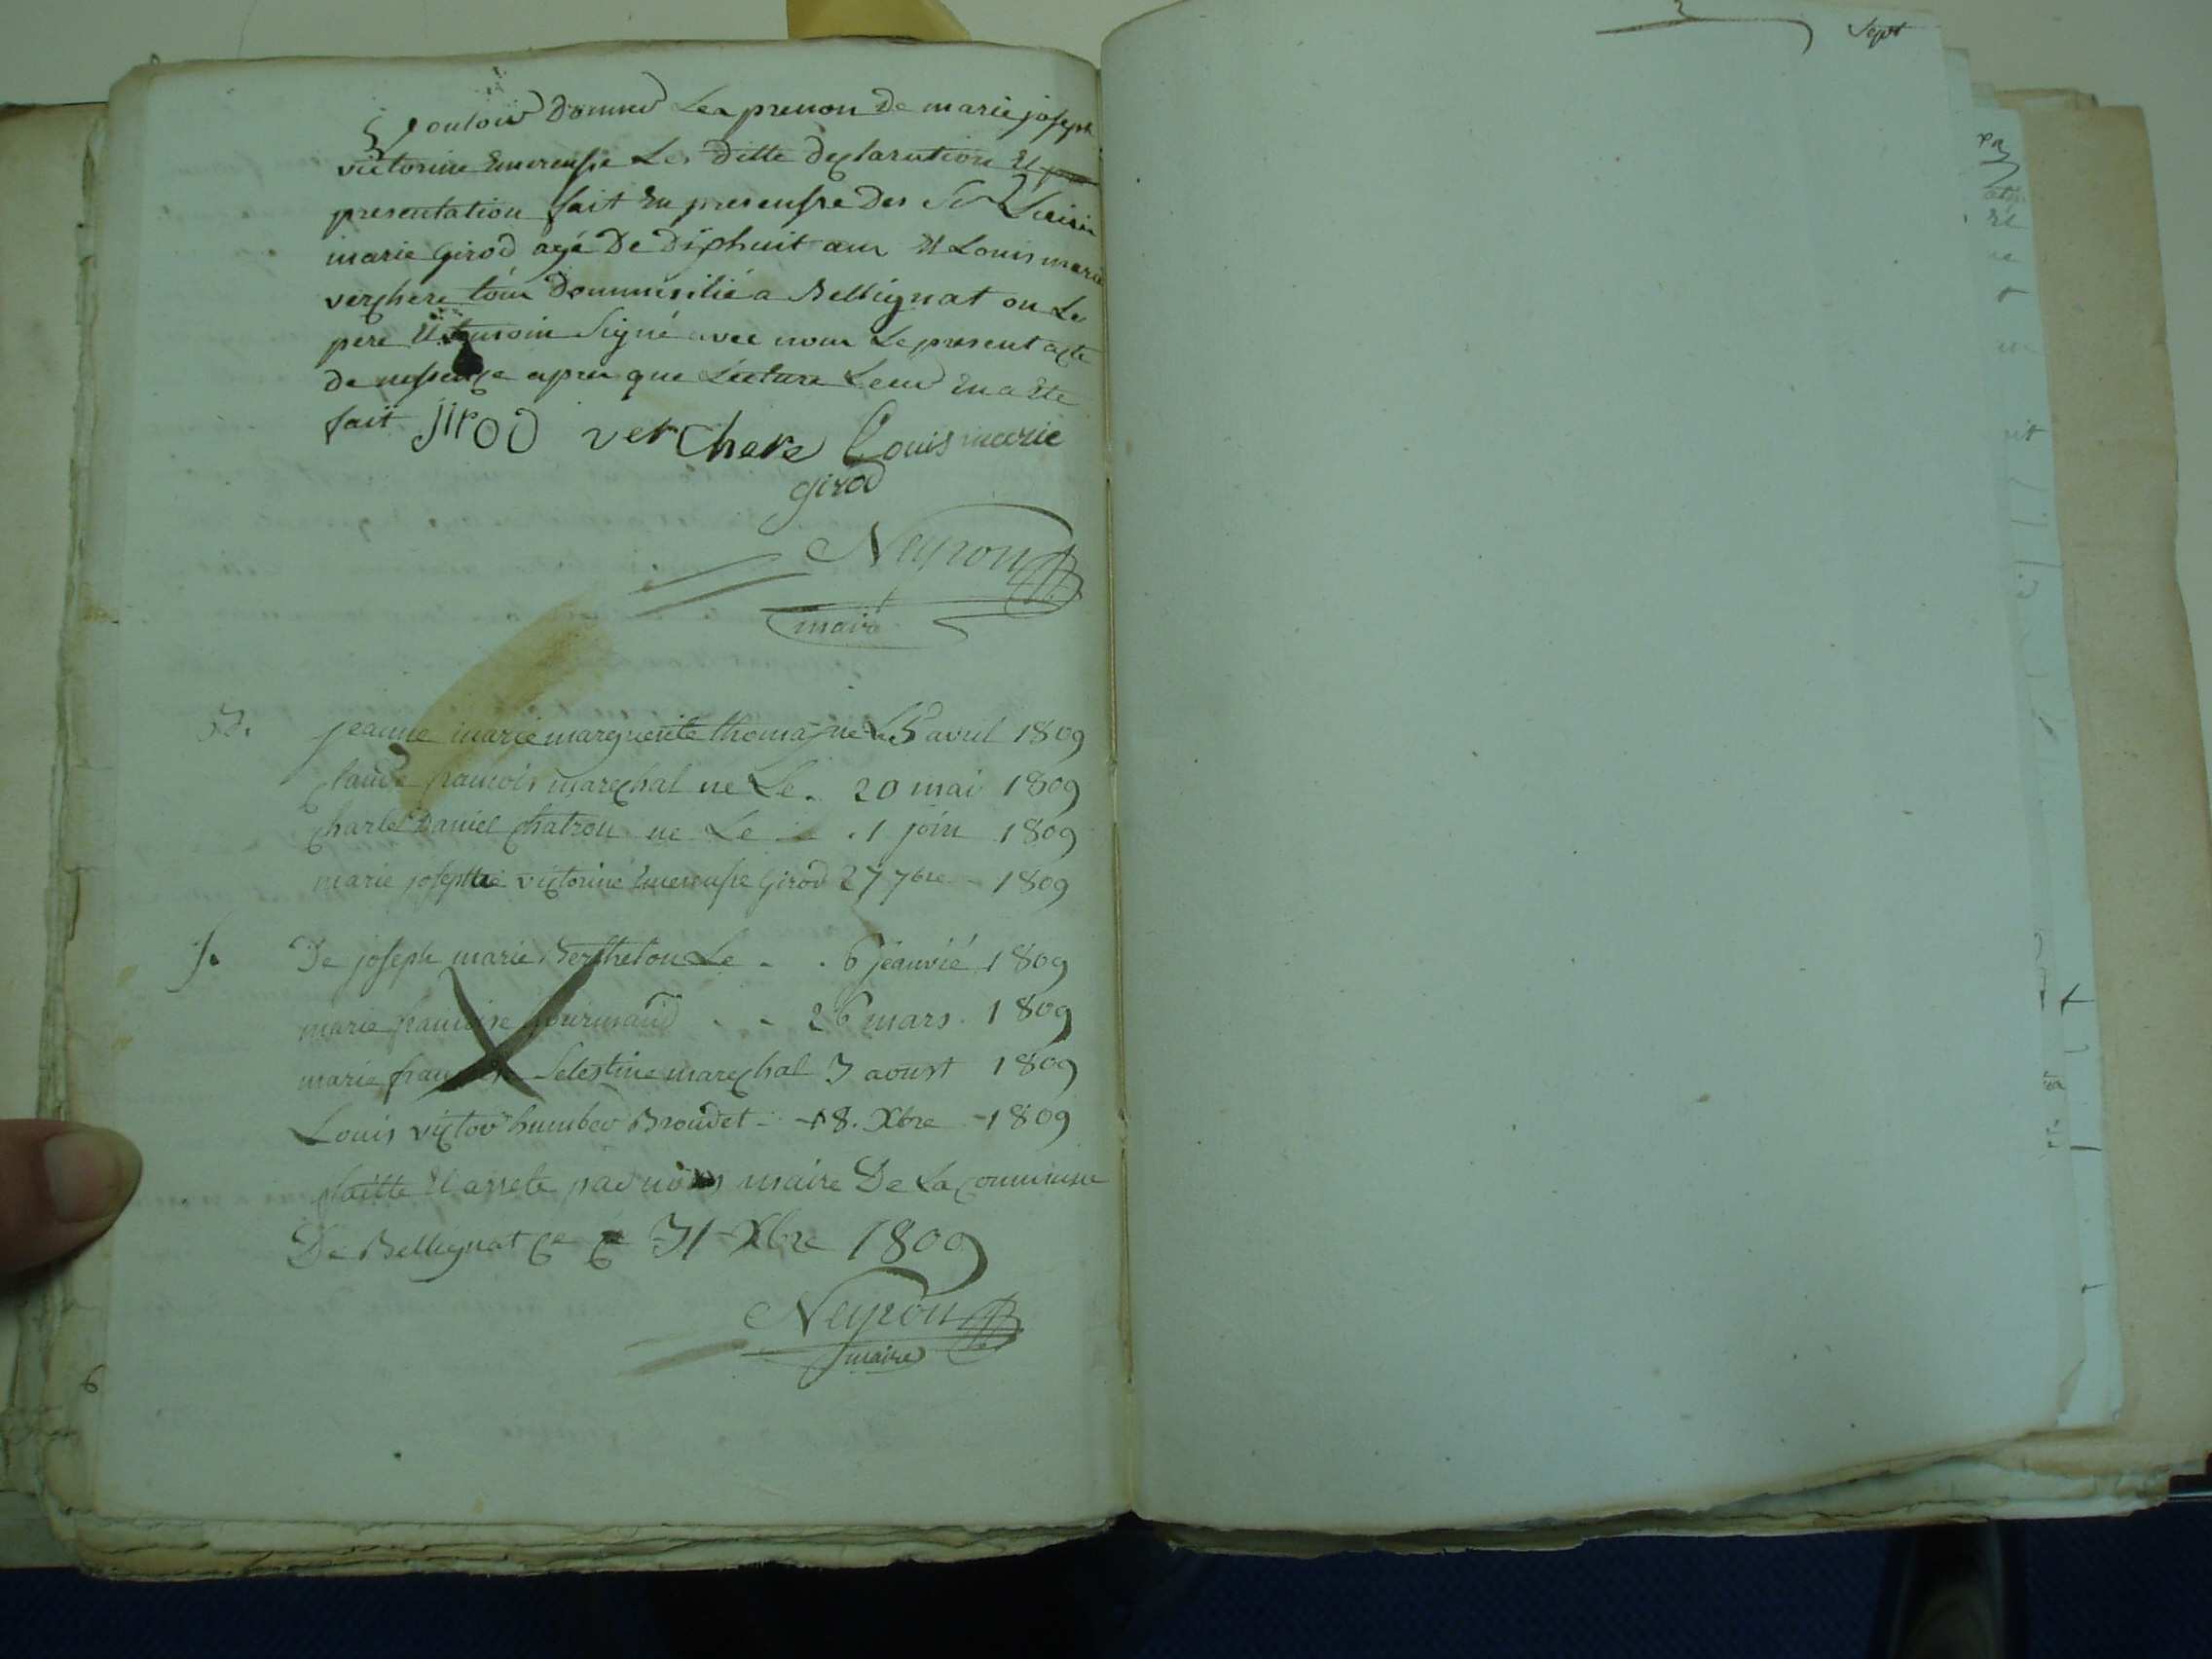 vouloir donner Les prenon De marie joseph
victorine Emereusse Les ditte declaration Et
presentation fait En presensse Des Sr
marie girod agé De Dixhuit ans Et Louis marie
verchere tous Dommisilié a Bellignat ou Le
pere Et temoin signé avec nous Le present acte
de nessence apres que Lecture Leur En a Ete
fait jirod verchere Louis marie
girod
Neyron
maire
jeanne marie marguerite thomas ne Le 5 avril 1809
claude francois marechal ne Le. 20 mai 1809
charle Daniel chatron ne Le . 1 join 1809
marie josephte victorine Emereusse girod 27 7bre - 1809
De joseph marie Berthelon Le - . 6 jeanvié 1809
marie francoise - - 26 mars. 1809
marie Selestine marechal 3 aoust 1809
Louis victor humber Broudet - 18. Xbre - 1809
faitte Et arrete par nous maire De La commune
De Bellignat ce 31 Xbre 1809
Neyron
maire
6
Sept